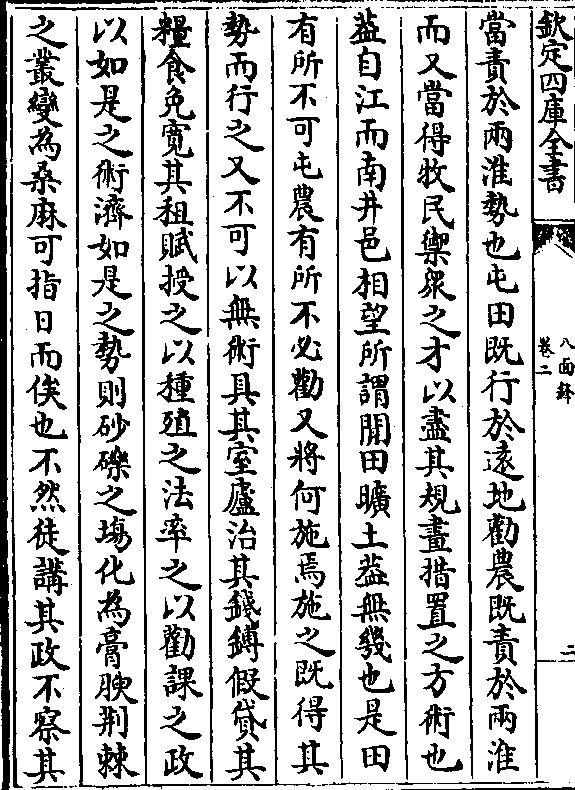 欽定四庫全書
八面鋒
卷二
二
當責於兩淮勢也屯田既行於遠地勸農既責於兩淮
而又當得牧民禦衆之才以盡其規畫措置之方術也
葢自江而南井邑相望所謂閒田曠土葢無幾也是田
有所不可屯農有所不必勸又將何施焉施之既得其
勢而行之又不可以無術具其室廬治其錢鎛假貸其
糧食免寛其租賦授之以種殖之法率之以勸課之政
以如是之術濟如是之勢則砂礫之塲化為膏腴荆棘
之叢變為桑麻可指日而俟也不然徒講其政不察其